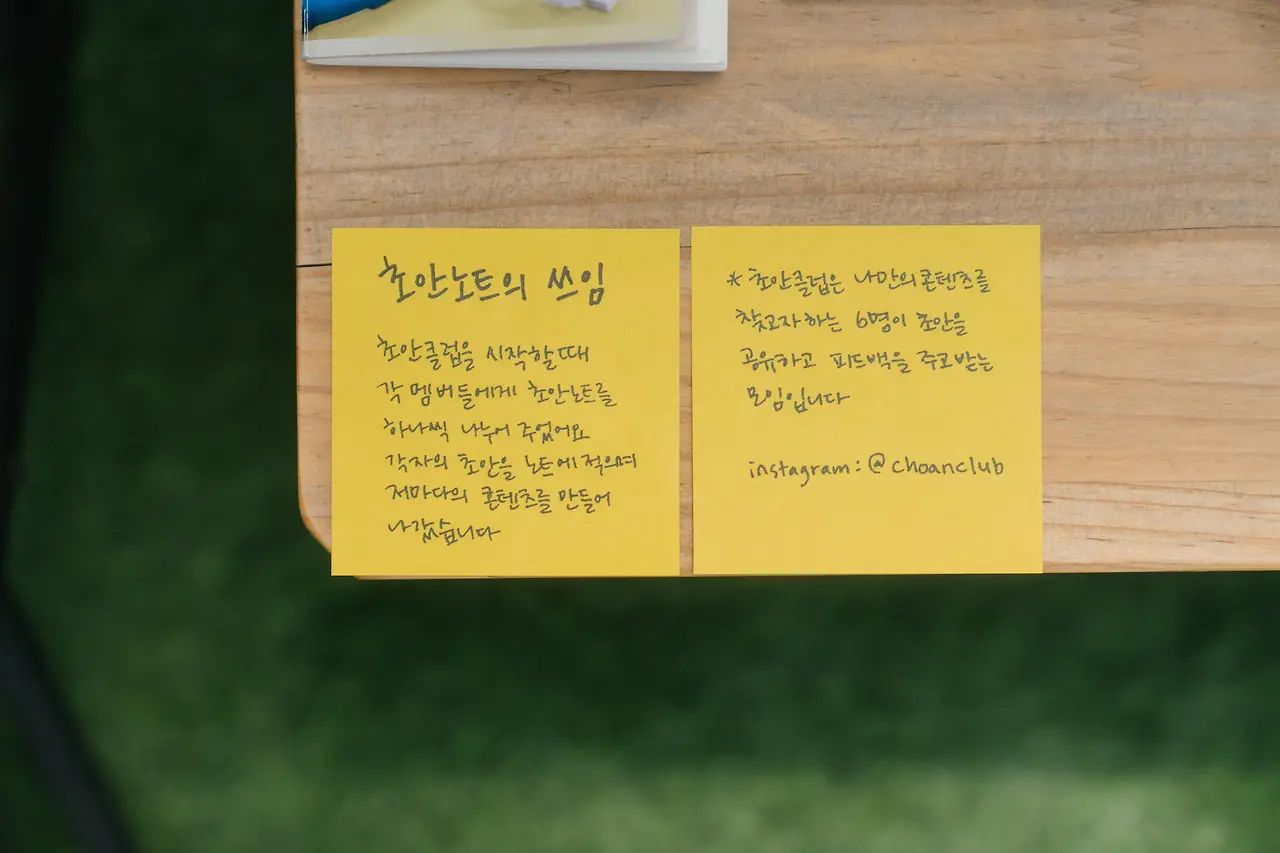 초안노트의 쓰임
초안클럽을 시작할때
각 멤버들에게 초안노트를
하나씩 나누어 주었어요
각자의 초안을 노트에 적으며
저마다의 콘텐츠를 만들어
나갔습니다
* 초안클럽은 나만의 콘텐츠를
찾고자하는 6명이 초안을
공유하고 피드백을 주고받는
모임입니다
instagram: @choanclub